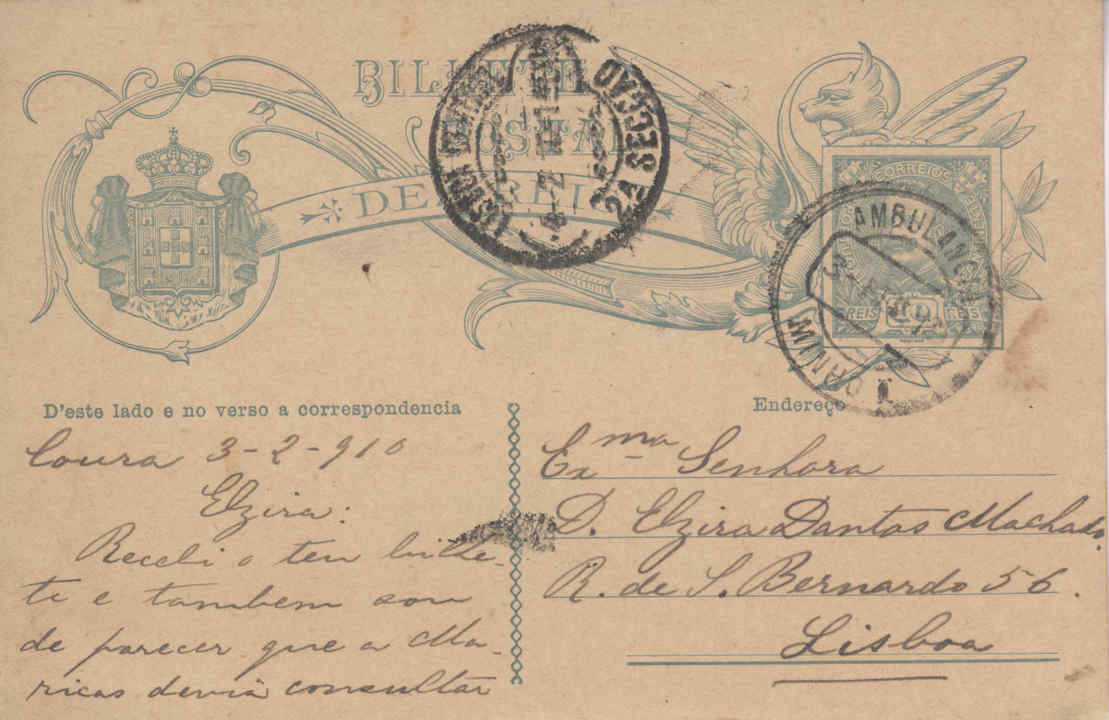 BILHETE
POSTAL
DE
2ª SECÇÃO
CORREIOS
AMBULANCIA
MINHO I
REIS 10 REIS
D'este lado e no verso a correspondencia
Endereço
Coura 3-2-910
Elzira:
Recebi o teu bilhe-
te e tambem sou
de parecer que a Ma-
ricas devia consultar
Exma Senhora
D. Elzira Dantas Machado.
R. de S. Bernardo 56.
Lisboa